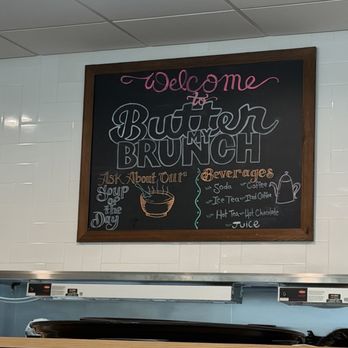 Welcome
to
Butter
MY
BRUNCH
Ask About Our
Soup
of the
Day
Beverages
Soda
Coffee
Ice Tea
Iced Coffee
Hot Tea
Hot Chocolate
Juice